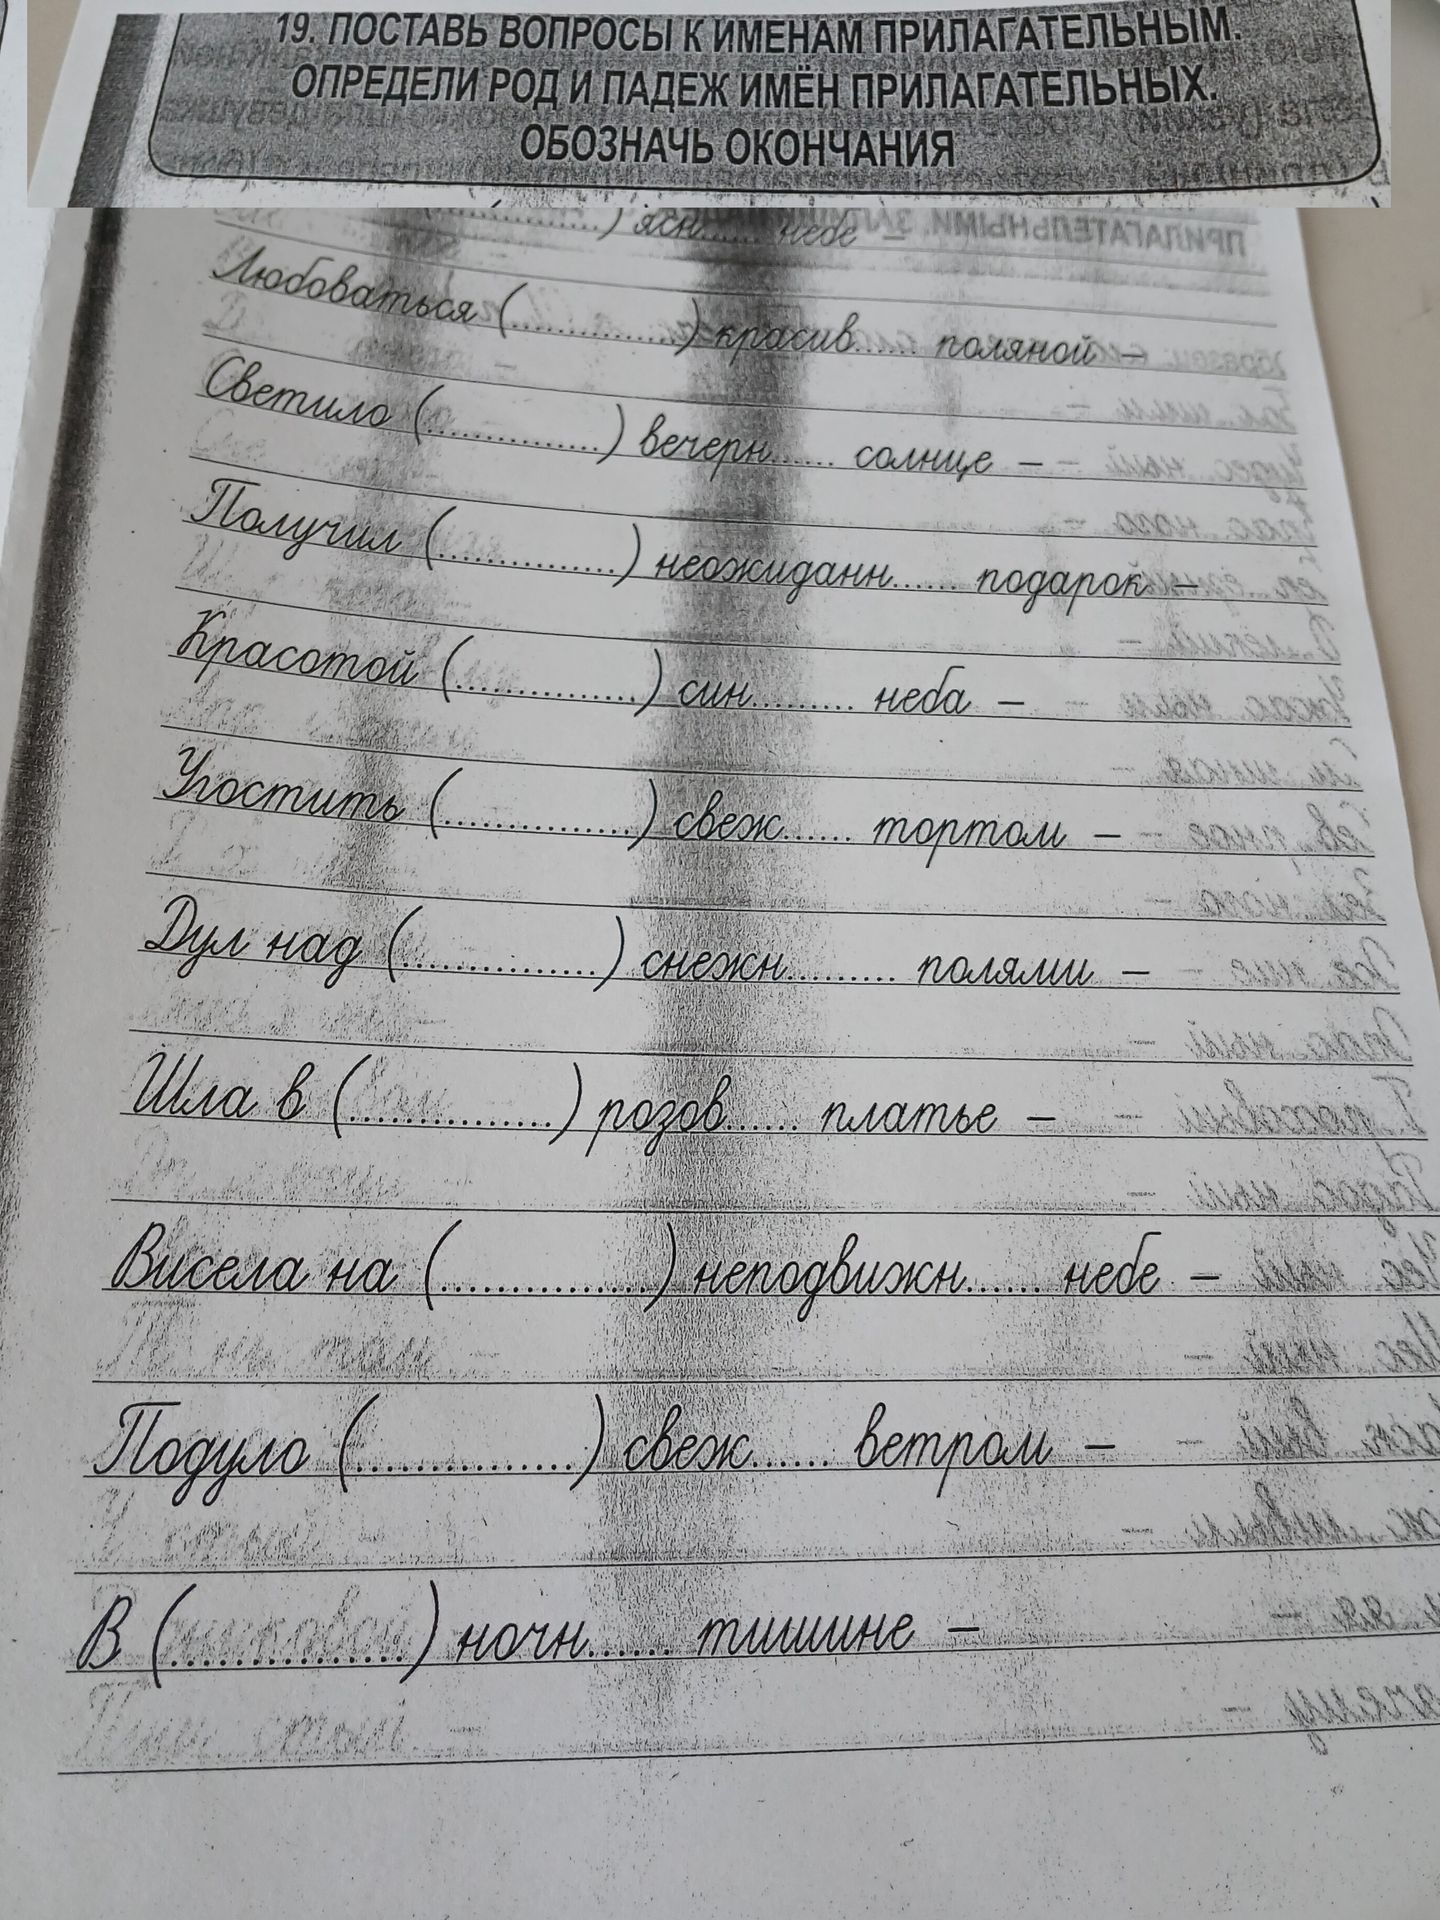 19. ПОСТАВЬ ВОПРОСЫ К ИМЕНАМ ПРИЛАГАТЕЛЬНЫМ.
ОПРЕДЕЛИ РОД И ПАДЕЖ ИМЁН ПРИЛАГАТЕЛЬНЫХ.
ОБОЗНАЧЬ ОКОНЧАНИЯ
(............) ясн...... небе –
Любоваться (..............) красив...... поляной –
Светило (..............) вечерн...... солнце –
Получил (..............) неожиданн...... подарок –
Красотой (..............) син......... неба –
Угостить (..............) свеж...... тортом –
Дул над (..............) снежн......... полями –
Шла в (..............) розов...... платье –
Висела на (..............) неподвижн...... небе –
Подуло (..............) свеж...... ветром –
В (..............) ночн...... тишине –